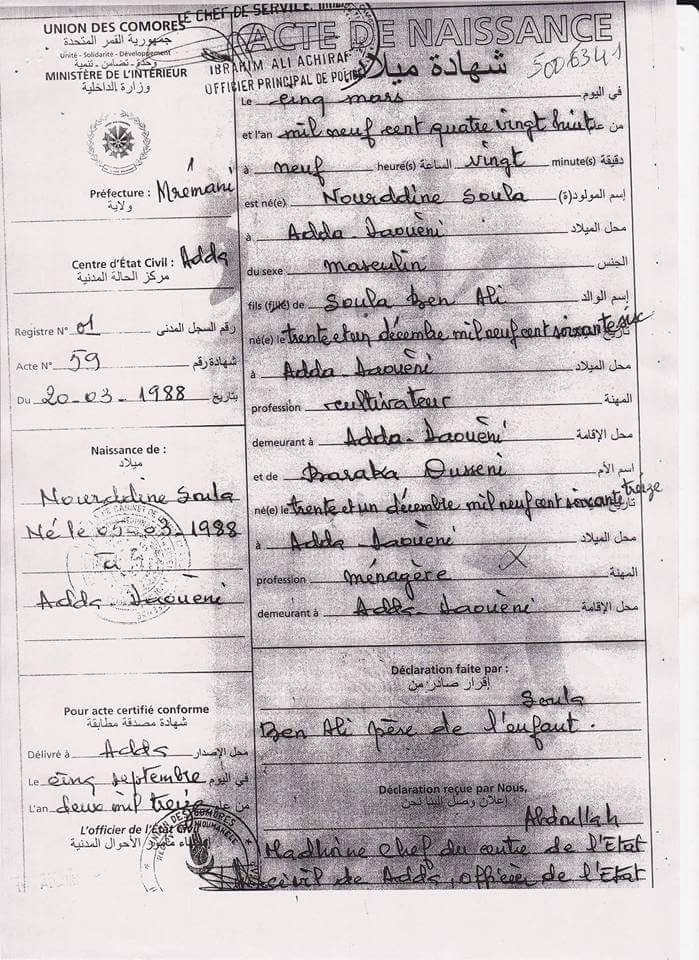 UNION DES COMORES
جمهورية القمر المتحدة
Unité - Solidarité - Développement
وحدة - تضامن - تنمية
MINISTÈRE DE L'INTÉRIEUR
وزارة الداخلية
Préfecture : Mrémani
ولاية
Centre d'État Civil : Adda
مركز الحالة المدنية
Registre N° 01 رقم السجل المدنى
Acte N° 59 شهادة رقم
Du 20-03-1988 بتاريخ
Naissance de :
ميلاد
Nourddine Soula
Né le 05-03-1988
à
Adda-Daouèni
Pour acte certifié conforme
شهادة مصدقة مطابقة
Délivré à Adda محل الإصدار
Le cinq septembre في اليوم
L'an deux mil treize من عام
L'officier de l'État Civil
الأحوال المدنية
LE CHEF DE SERVICE
ACTE DE NAISSANCE
IBRAHIM ALI ACHIRAF
OFFICIER PRINCIPAL DE POLICE
شهادة ميلاد
5006341
Le cinq mars في اليوم
et l'an mil neuf cent quatre vingt huit من عام
à neuf heure(s) الساعة vingt minute(s) دقيقة
est né(e) Nourddine Soula إسم المولود(ة)
à Adda-Daouèni محل الميلاد
du sexe masculin الجنس
fils (fille) de Soula Ben Ali إسم الوالد
né(e) le trente et un décembre mil neuf cent soixante six تاريخ
à Adda Daouèni محل الميلاد
profession cultivateur المهنة
demeurant à Adda-Daouèni محل الإقامة
et de Baraka Ousseni اسم الأم
né(e) le trente et un décembre mil neuf cent soixante treize تاريخ
à Adda Daouèni محل الميلاد
profession ménagère المهنة
demeurant à Adda-Daouèni محل الإقامة
Déclaration faite par :
إقرار صادر من
Soula
Ben Ali père de l'enfant.
Déclaration reçue par Nous,
إعلان وصل إلينا نحن
Abdoullah
Madhoine Chef du centre de l'Etat
civil de Adda, officier de l'Etat